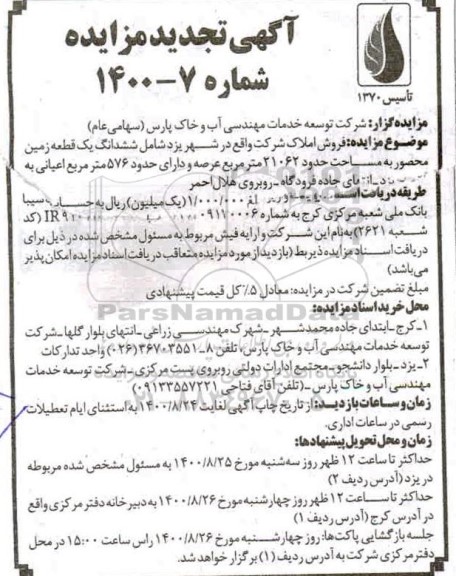 آگهی تجدید مزایده
شماره ۷-۱۴۰۰
تاسیس ۱۳۷۰
مزایده گزار: شرکت توسعه خدمات مهندسی آب و خاک پارس (سهامی عام)
موضوع مزایده: فروش املاک شرکت واقع در شهر یزد شامل ششدانگ یک قطعه زمین
محصور به مساحت حدود ۲۱۰۶۲ متر مربع عرصه و دارای حدود ۵۷۶ متر مربع اعیانی به
جاده فرودگاه - روبروی هلال احمر
طریقه دریافت ۱/۰۰۰/۰۰۰ (یک میلیون) ریال به حساب سیبا
بانک ملی شعبه مرکزی کرج به شماره IR۹ (کد
شعبه ۲۶۲۱) به نام این شرکت و ارایه فیش مربوط به مسئول مشخص شده در ذیل برای
دریافت اسناد مزایده ذیربط (بازدید از مورد مزایده متعاقب دریافت اسناد مزایده امکان پذیر
می باشد)
مبلغ تضمین شرکت در مزایده: معادل ۵٪ کل قیمت پیشنهادی
ParsNamadData
محل خرید اسناد مزایده:
۱- کرج - ابتدای جاده محمدشهر - شهرک مهندسی زراعی - انتهای بلوار گلها - شرکت
توسعه خدمات مهندسی آب و خاک پارس، تلفن ۸-۳۶۷۰۳۵۵۱ (۰۲۶) واحد تدارکات
۲- یزد - بلوار دانشجو - مجتمع ادارات دولتی روبروی پست مرکزی - شرکت توسعه خدمات
مهندسی آب و خاک پارس - (تلفن آقای فتاحی ۰۹۱۳۳۵۵۷۲۲۱)
زمان و ساعات بازدید: از تاریخ چاپ آگهی لغایت ۱۴۰۰/۸/۲۴ به استثنای ایام تعطیلات
رسمی در ساعات اداری.
زمان و محل تحویل پیشنهادها:
حداکثر تا ساعت ۱۲ ظهر روز سه شنبه مورخ ۱۴۰۰/۸/۲۵ به مسئول مشخص شده مربوطه
در یزد (آدرس ردیف ۲)
حداکثر تا ساعت ۱۲ ظهر روز چهارشنبه مورخ ۱۴۰۰/۸/۲۶ به دبیرخانه دفتر مرکزی واقع
در آدرس کرج (آدرس ردیف ۱)
جلسه بازگشایی پاکت ها: روز چهارشنبه مورخ ۱۴۰۰/۸/۲۶ راس ساعت ۱۵:۰۰ در محل
دفتر مرکزی شرکت به آدرس ردیف (۱) برگزار خواهد شد.